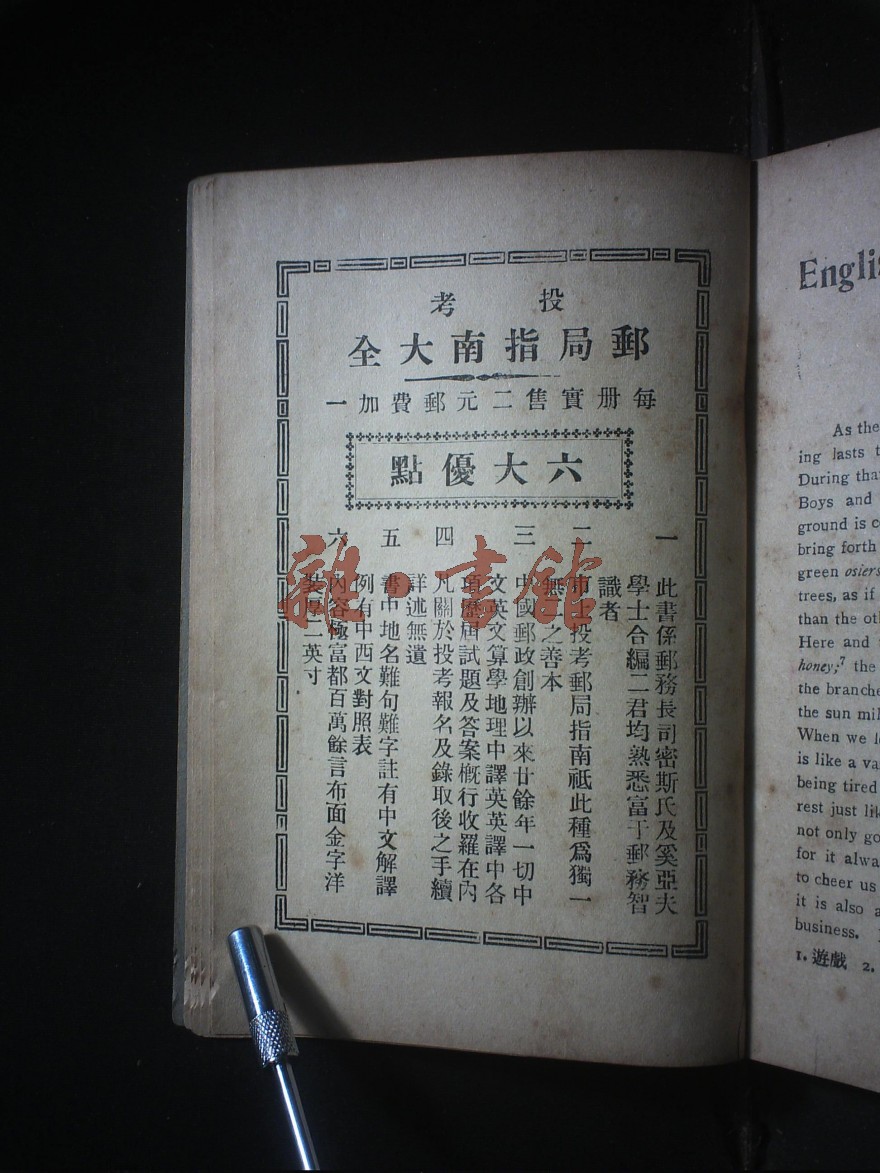 投考
郵局指南大全
每册實售二元郵費加一
六大優點
一 此書係郵務長司密斯氏及奚亞夫
學士合編二君均熟悉富于郵務智
識者
二 市上投考郵局指南祗此種爲獨一
無二之善本
三 中國郵政創辦以來廿餘年一切中
文英文算學地理中譯英英譯中各
項歷屆試題及答案概行收羅在內
四 凡關於投考報名及錄取後之手續
詳述無遺
五 書中地名難句難字註有中文解譯
例有中西文對照表
六 內容極富都百萬餘言布面金字洋
裝厚二英寸
雜·書館
Englis
As the
ing lasts t
During tha
Boys and
ground is c
bring forth
green osiers
trees, as if
than the oth
Here and
honey;7 the
the branche
the sun mil
When we l
is like a va
being tired
rest just lik
not only go
for it alwa
to cheer us
it is also a
business.
1. 遊戲 2.